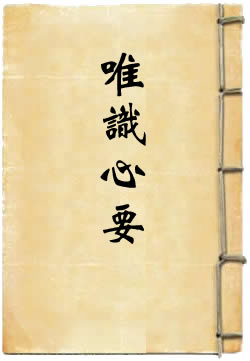 唯識心要